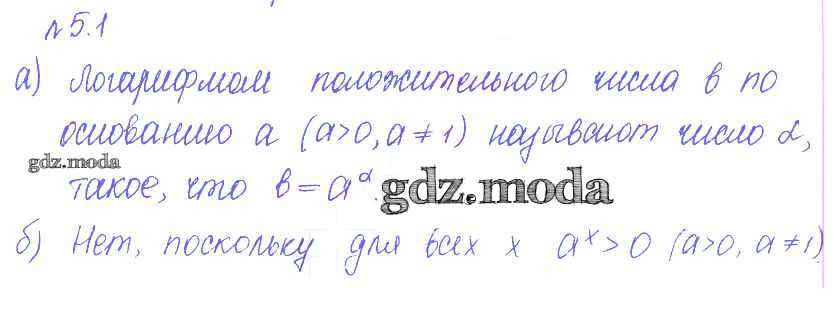 №5.1
а) Логарифмом положительного числа в по
основанию а (a>0, a≠1) называют число α,
gdz.moda
такое, что в = a^α.
gdz.moda
б) Нет, поскольку для всех x a^x>0 (a>0, a≠1)